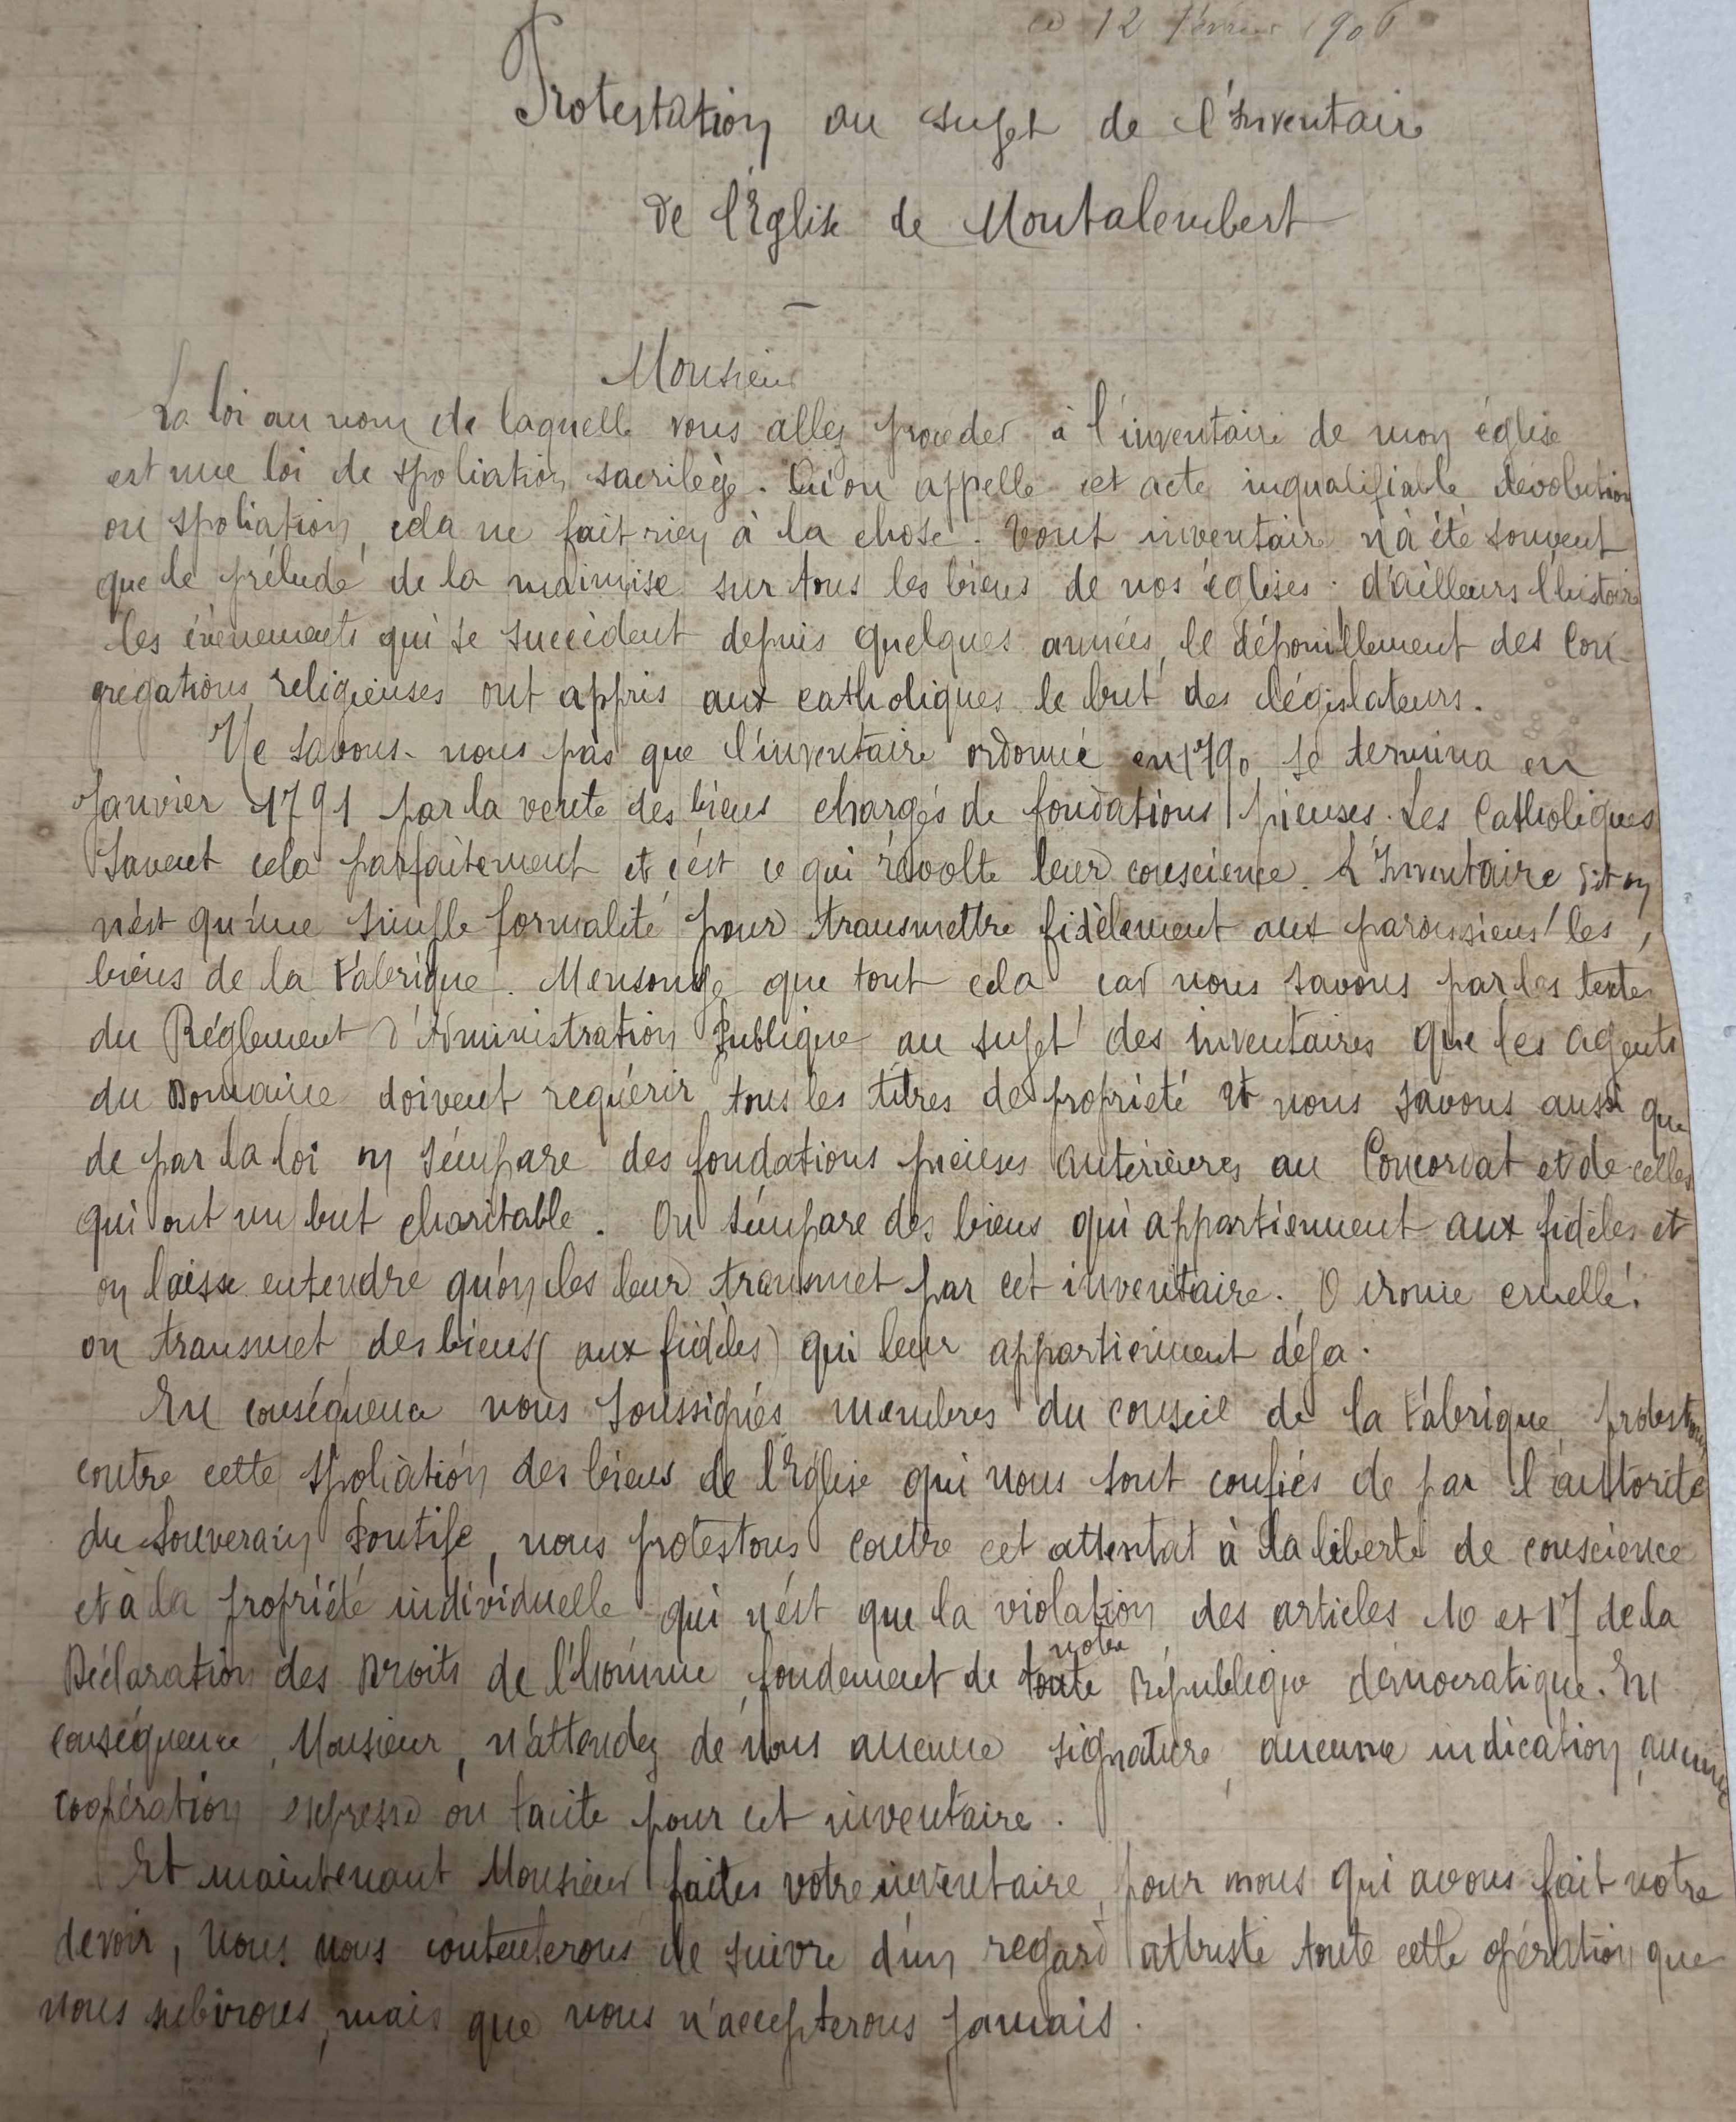 ce 12 février 1906
Protestation au sujet de l'Inventaire
de l'Eglise de Montalembert
Monsieur
La loi au nom de laquelle vous allez procéder à l'inventaire de mon église
est une loi de spoliation sacrilège. Qu'on appelle cet acte inqualifiable dévolution
ou spoliation, cela ne fait rien à la chose. Tout inventaire n'a été souvent
que le prélude de la mainmise sur tous les biens de nos églises. d'ailleurs l'histoire
les évènements qui se succèdent depuis quelques années, le dépouillement des Con-
grégations religieuses ont appris aux catholiques le but des législateurs.
Ne savons-nous pas que l'inventaire ordonné en 1790 se termina en
Janvier 1791 par la vente des biens chargés de fondations pieuses. Les Catholiques
savent cela parfaitement et c'est ce qui révolte leur conscience. L'Inventaire dit on
n'est qu'une simple formalité pour transmettre fidèlement aux paroissiens les
biens de la Fabrique. Mensonge que tout cela car nous savons par les textes
du Réglement d'Administration Publique au sujet des inventaires que les agents
du Domaine doivent requérir tous les titres de propriété et nous savons aussi que
de par la loi on s'empare des fondations pieuses antérieures au Concordat et de celles
qui ont un but charitable. On s'empare des biens qui appartiennent aux fidèles et
on laisse entendre qu'on les leur transmet par cet inventaire. O ironie cruelle!
on transmet des biens (aux fidèles) qui leur appartiennent déja.
En conséquence nous soussignés membres du conseil de la Fabrique, protestons
contre cette spoliation des biens de l'Eglise qui nous sont confiés de par l'autorité
du Souverain Pontife, nous protestons contre cet attentat à la liberté de conscience
et à la propriété individuelle qui n'est que la violation des articles 10 et 17 de la
Déclaration des Droits de l'homme, fondement de toute notre République démocratique. En
conséquence, Monsieur, n'attendez de nous aucune signature, aucune indication, aucune
coopération expresse ou tacite pour cet inventaire.
Et maintenant Monsieur faites votre inventaire, pour nous qui avons fait notre
devoir, nous nous contenterons de suivre d'un regard attristé toute cette opération que
nous subirons, mais que nous n'accepterons jamais.